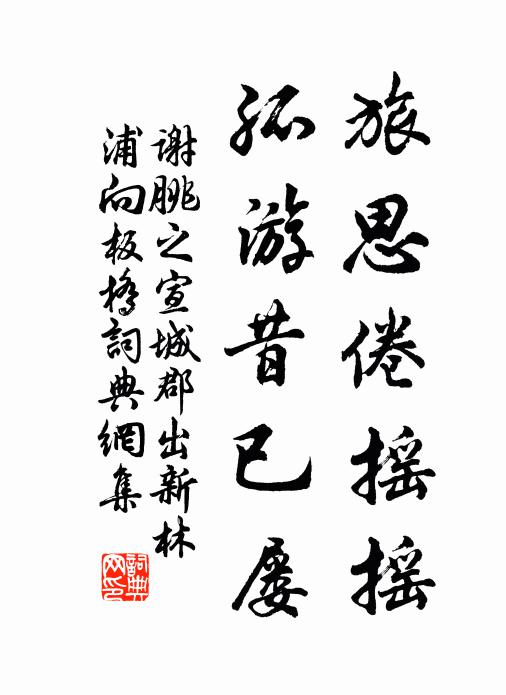 旅思倦摇摇
孤游昔已屡
谢脁之宣城郡出新林
浦向板桥詞典網集
詞典
网印